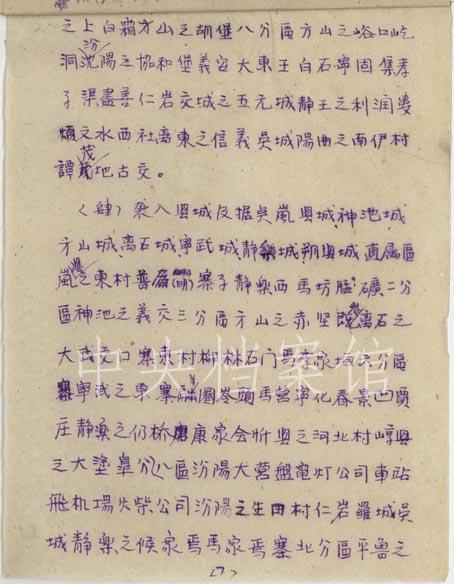 之上白霜方山之胡堡八分區方山之峪口屹
洞汾陽之協和堡義安大東王白石寧固集孝
子渠盡善仁岩交城之五元城靜王之利润婆
頭文水西社离東之信義吳城陽曲之南伊村
譚茂地古交。
〈肆〉襲入與城反据吳嵐興城神池城
方山城离石城寧武城靜樂城朔县城直属區
嵐之東村普明寨子靜樂西馬坊 礦二分
區神池之義交三分區方山之赤坚 离石之
大武交口寨東村柳林石门馬家墕六分區
寧武之東寨 圂岑頭馬营寧化春景凹賈
庄靜樂之仍桥康家会忻县之河北村崞县
之大塗皐八區汾陽大营盤電灯公司車站
飛机場火柴公司汾陽之生田村仁岩羅城吳
城靜樂之候家焉馬家焉寨北分區平魯之
中央档案馆
(7)